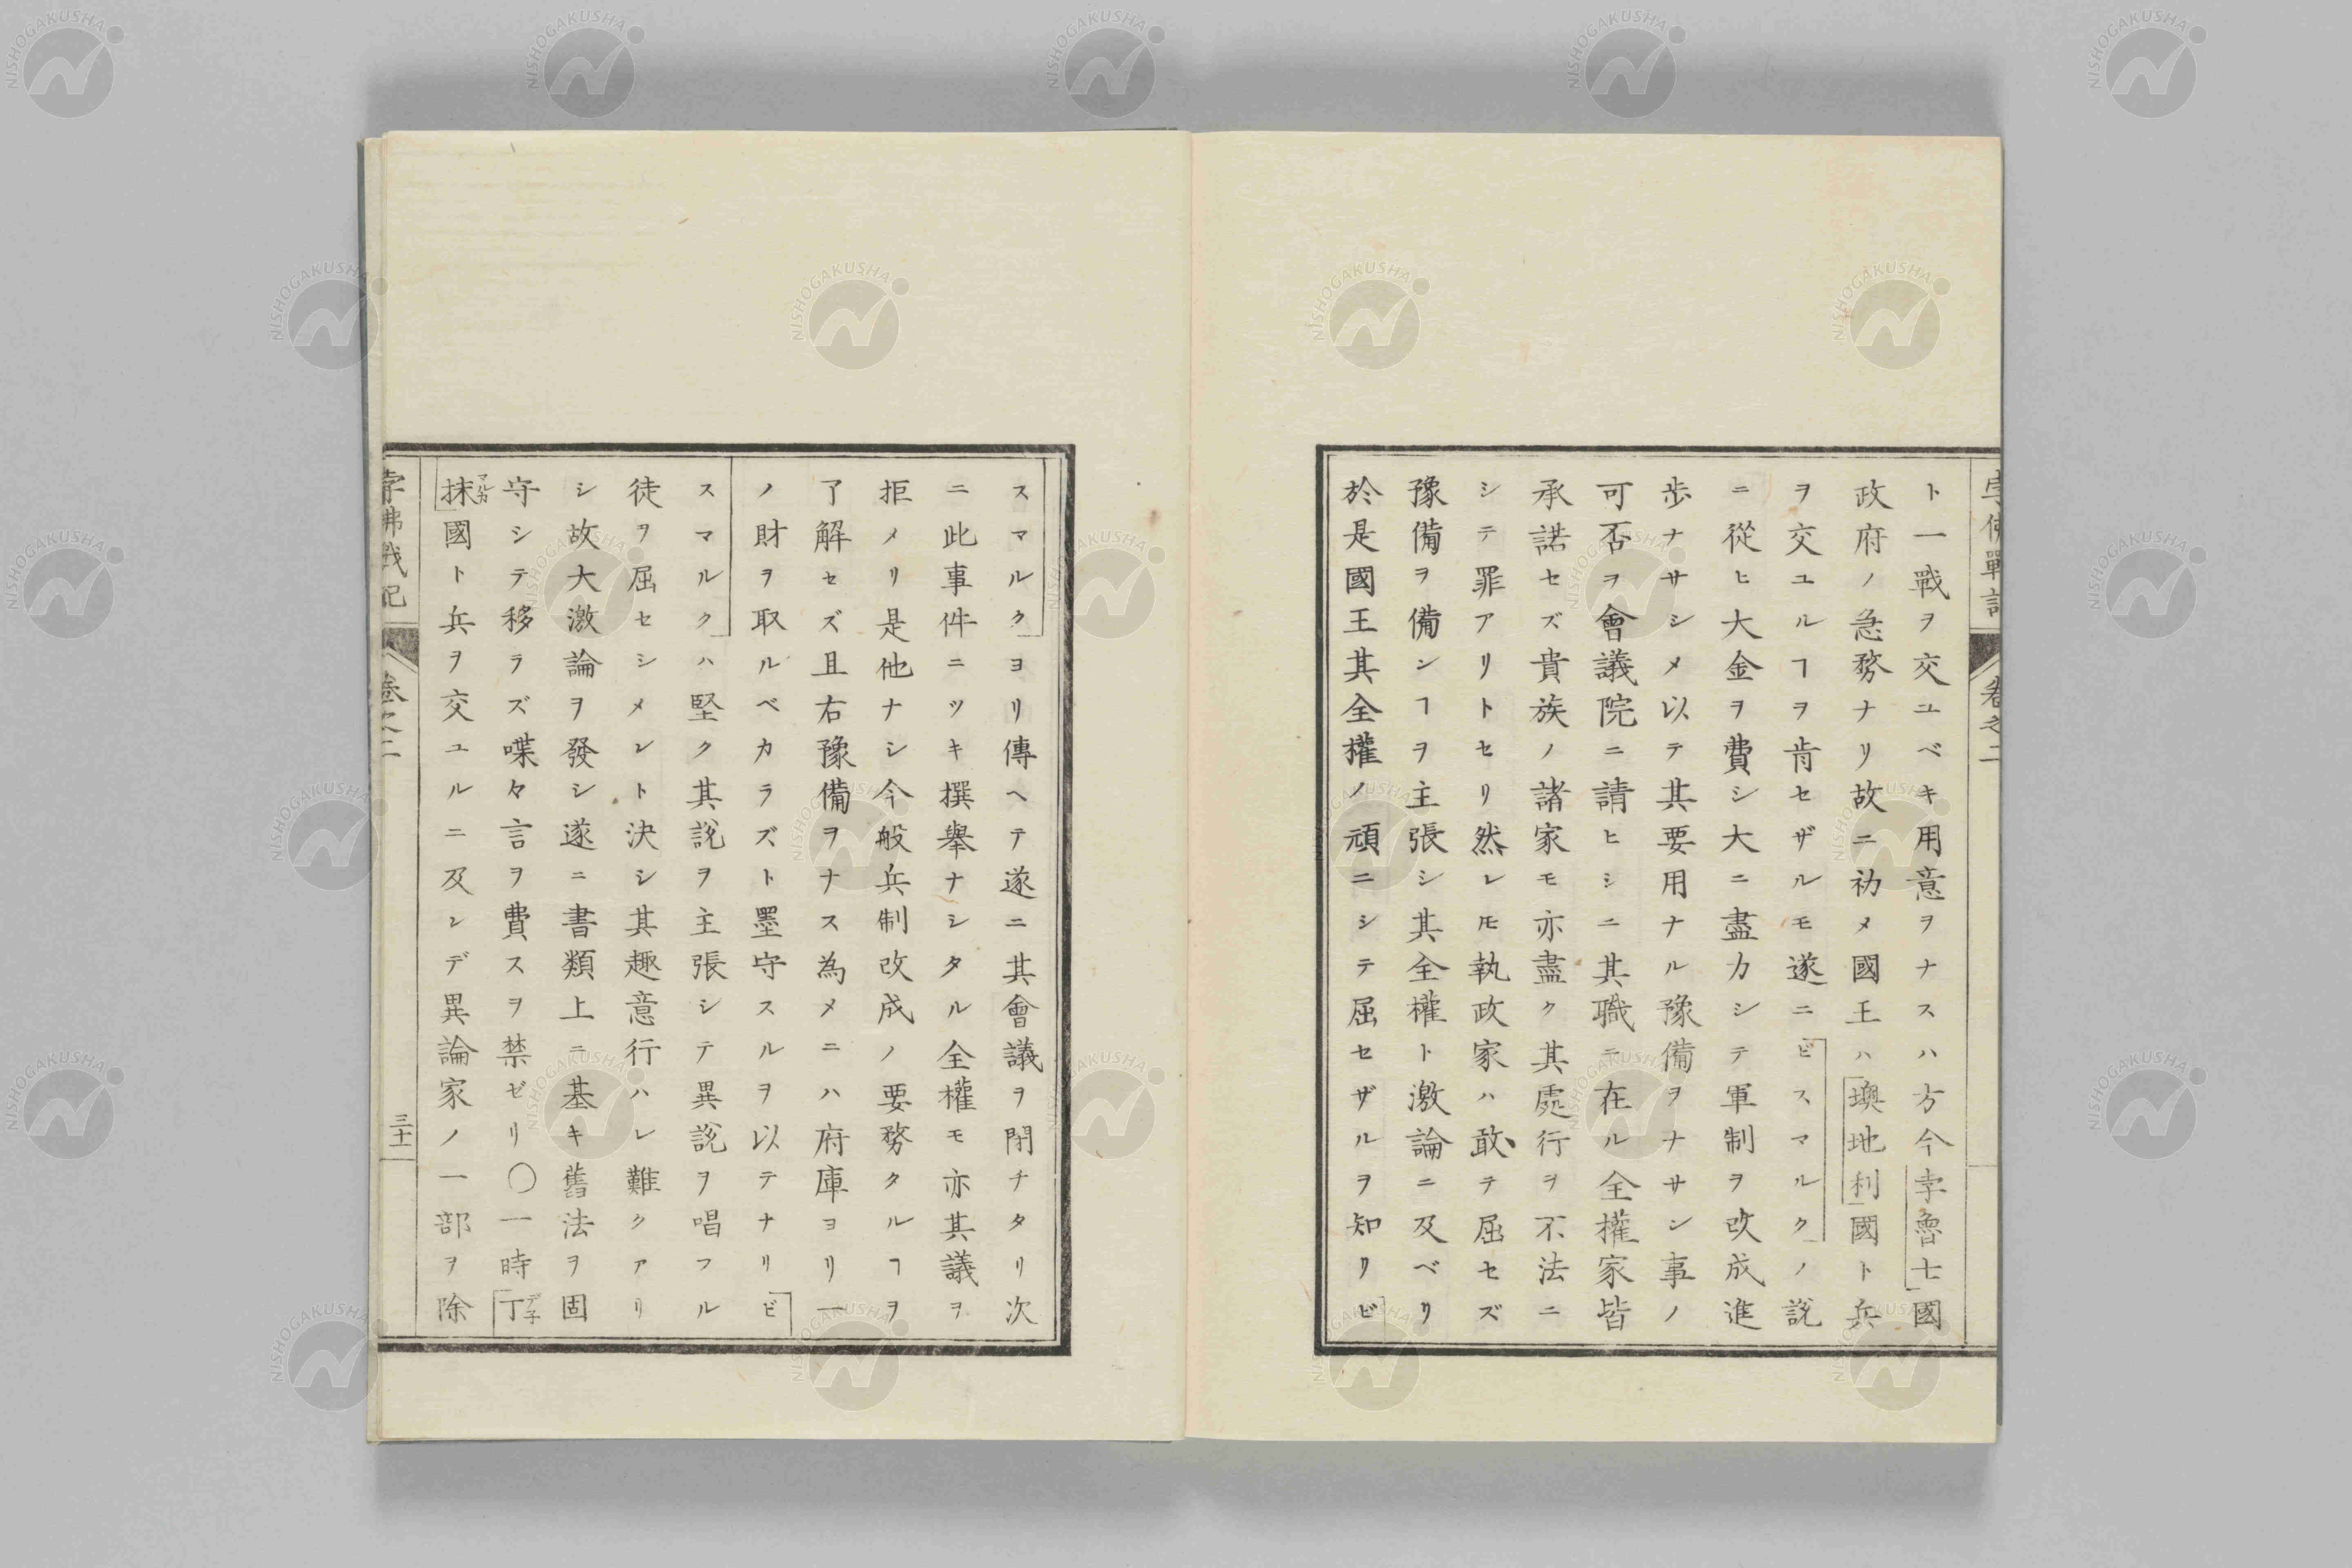 孛佛戰記
卷之二
ト一戰ヲ交ユベキ用意ヲナスハ方今孛魯士國
政府ノ急務ナリ故ニ初メ國王ハ墺地利國ト兵
ヲ交ユルヿヲ肯セザルモ遂ニビスマルクノ説
ニ從ヒ大金ヲ費シ大ニ盡力シテ軍制ヲ改成進
歩ナサシメ以テ其要用ナル豫備ヲナサン事ノ
可否ヲ會議院ニ請ヒシニ其職ニ在ル全權家皆
承諾セズ貴族ノ諸家モ亦盡ク其處行ヲ不法ニ
シテ罪アリトセリ然レ𪜈執政家ハ敢テ屈セズ
豫備ヲ備ンヿヲ主張シ其全權ト激論ニ及ベリ
於是國王其全權ノ頑ニシテ屈セザルヲ知リビ
スマルクヨリ傳ヘテ遂ニ其會議ヲ閉チタリ次
ニ此事件ニツキ撰擧ナシタル全權モ亦其議ヲ
拒メリ是他ナシ今般兵制改成ノ要務タルヿヲ
了解セズ且右豫備ヲナス為メニハ府庫ヨリ一
ノ財ヲ取ルベカラズト墨守スルヲ以テナリビ
スマルクハ堅ク其説ヲ主張シテ異説ヲ唱フル
徒ヲ屈セシメント決シ其趣意行ハレ難クアリ
シ故大激論ヲ發シ遂ニ書類上ニ基キ舊法ヲ固
守シテ移ラズ喋々言ヲ費スヲ禁ゼリ〇一時丁デ子
抹マルカ國ト兵ヲ交ユルニ及ンデ異論家ノ一部ヲ除
孛佛戰記
卷之二
三十一